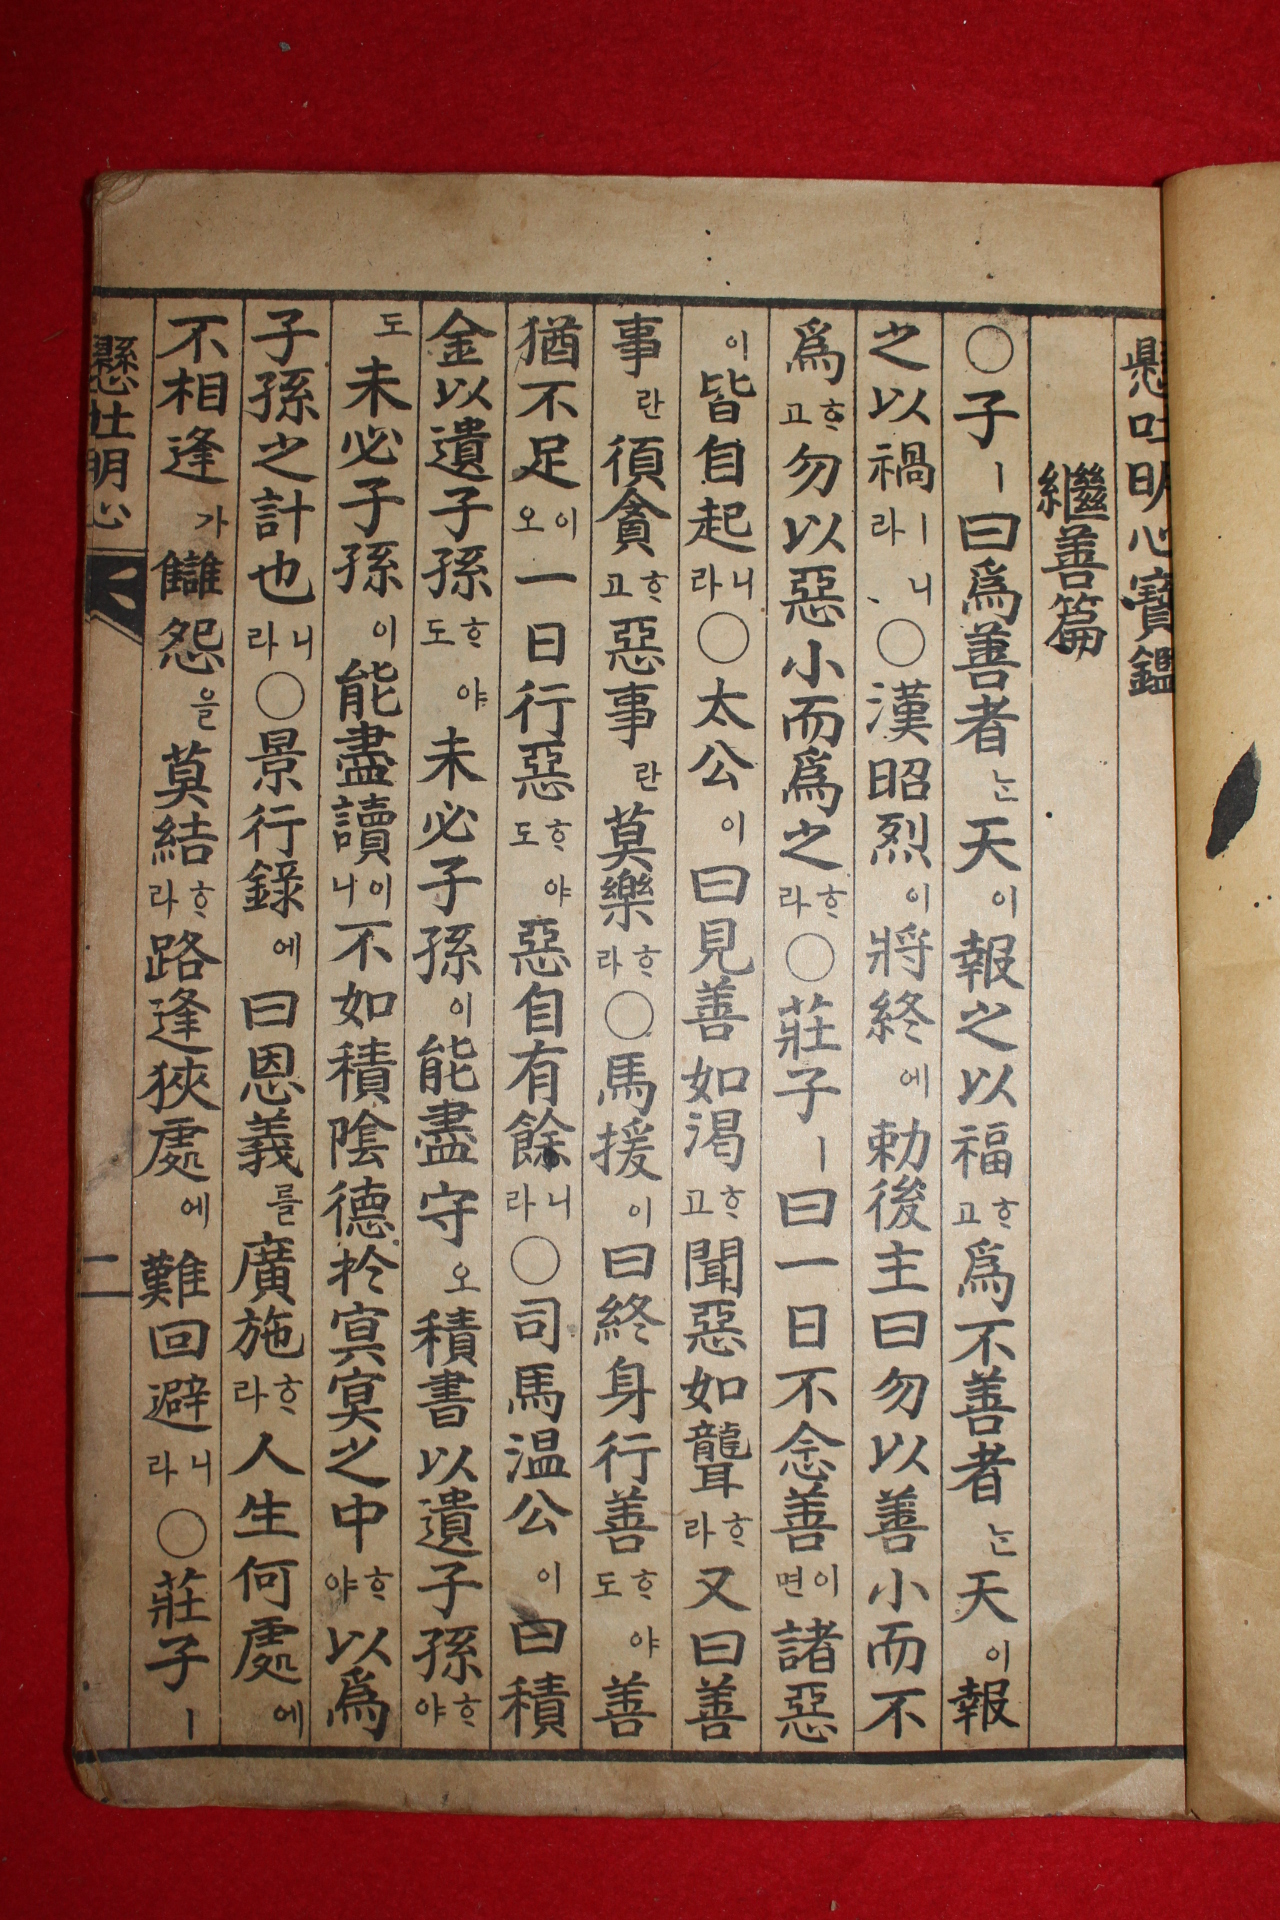 懸吐明心寶鑑
繼善篇
○子ㅣ曰爲善者ᄂᆞᆫ天이報之以福ᄒᆞ고爲不善者ᄂᆞᆫ天이報
之以禍ㅣ니라○漢昭烈이將終에勅後主曰勿以善小而不
爲ᄒᆞ고勿以惡小而爲之ᄒᆞ라○莊子ㅣ曰一日不念善이면諸惡
이皆自起니라○太公이曰見善如渴ᄒᆞ고聞惡如聾ᄒᆞ라又曰善
事란須貪ᄒᆞ고惡事란莫樂ᄒᆞ라○馬援이曰終身行善ᄒᆞ야도善
猶不足이오一日行惡ᄒᆞ야도惡自有餘니라○司馬温公이曰積
金以遺子孫ᄒᆞ야도未必子孫이能盡守오積書以遺子孫ᄒᆞ야
도未必子孫이能盡讀이니不如積陰德於冥冥之中ᄒᆞ야以爲
子孫之計也니라○景行錄에曰恩義를廣施ᄒᆞ라人生何處에
不相逢가讎怨을莫結ᄒᆞ라路逢狹處에難回避니라○莊子ㅣ
懸吐明心
二